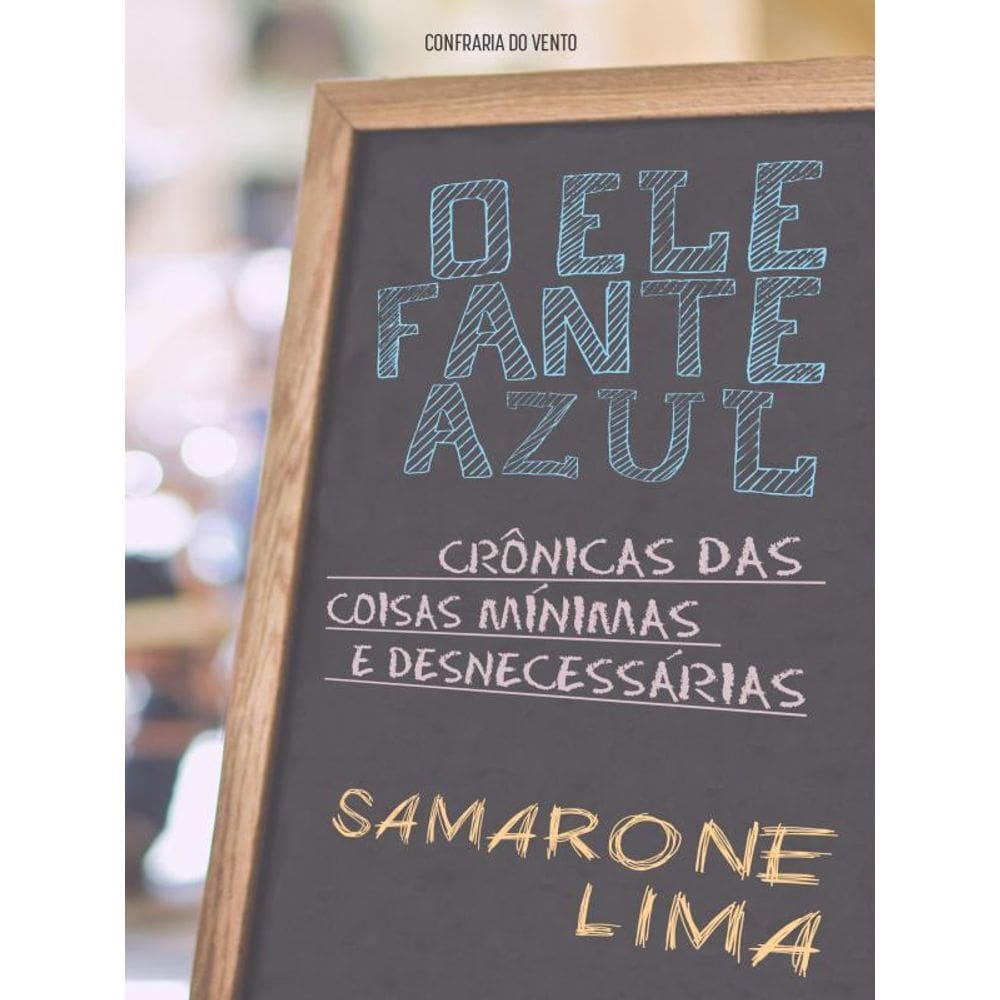 CONFRARIA DO VENTO
O ELE
FANTE
AZUL
CRÔNICAS DAS
COISAS MÍNIMAS
E DESNECESSÁRIAS
SAMARONE
LIMA